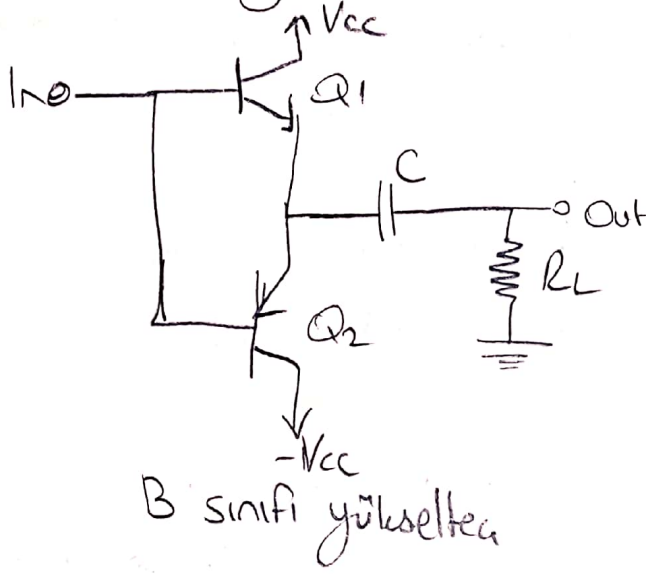 Vcc
In
Q1
C
Out
RL
Q2
-Vcc
B sınıfı yükselteç